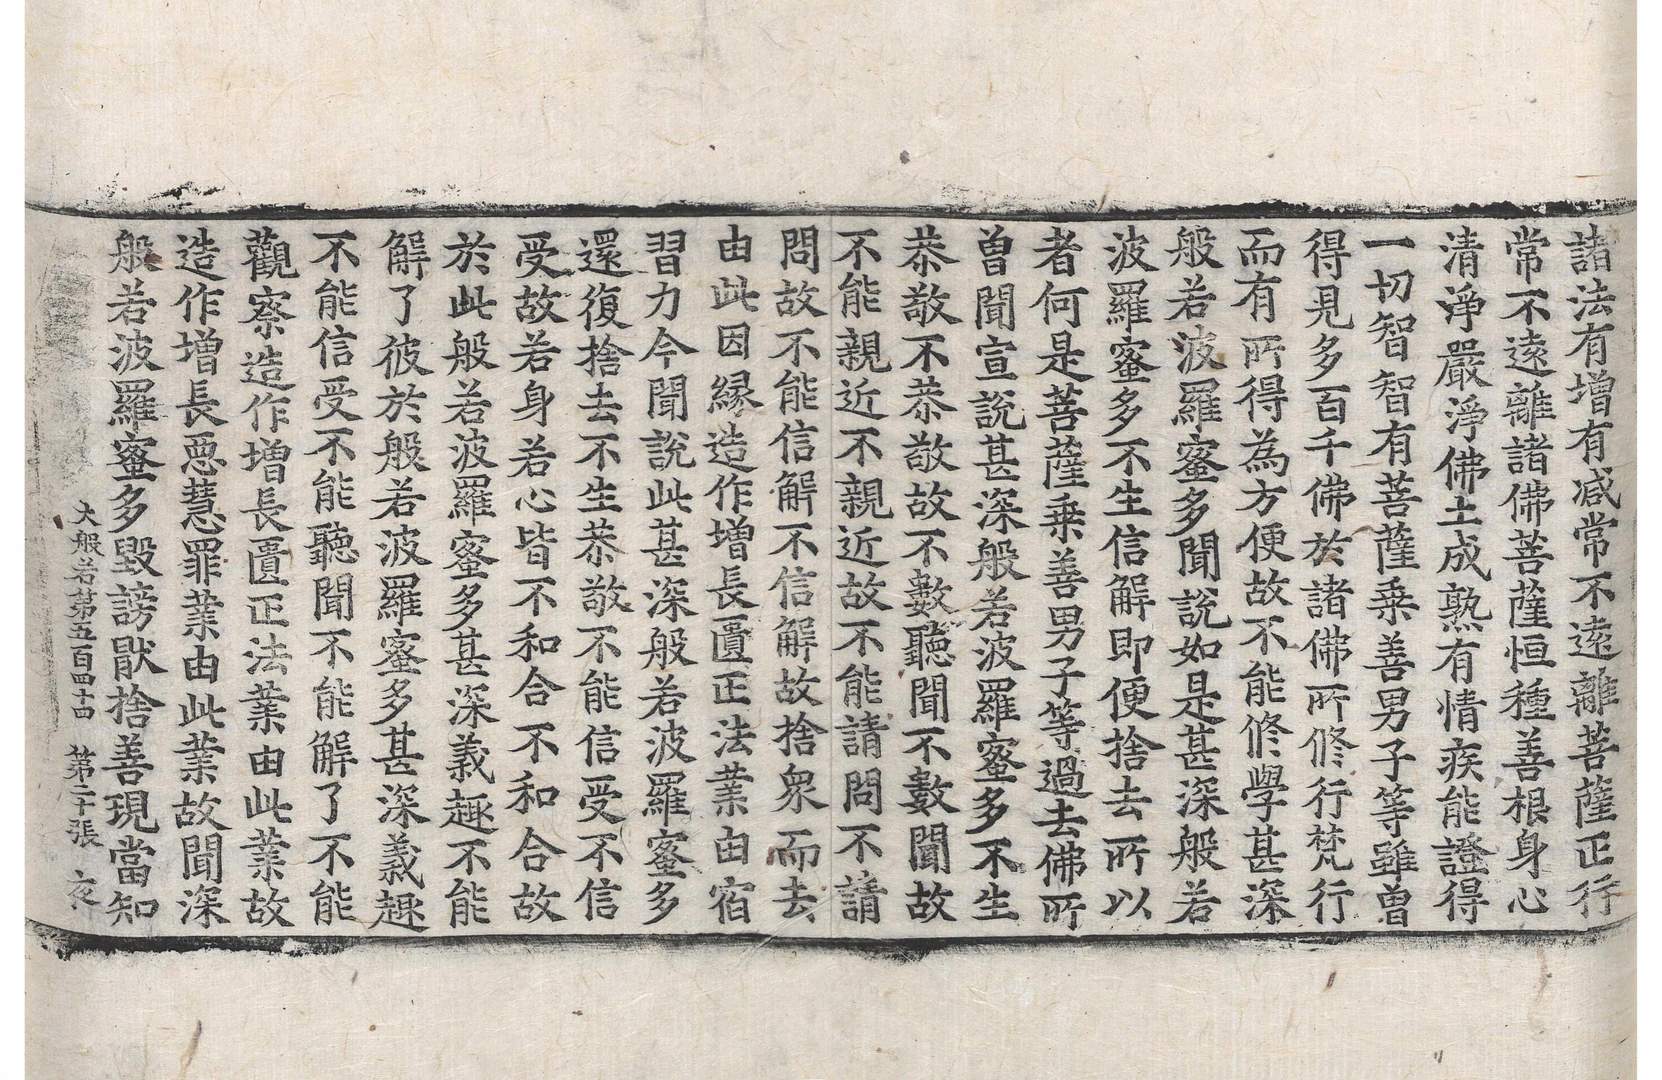 諸法有增有减常不遠離菩薩正行
常不遠離諸佛菩薩恒種善根身心
清淨嚴淨佛土成熟有情疾能證得
一切智智有菩薩乘善男子等雖曾
得見多百千佛於諸佛所修行梵行
而有所得為方便故不能修學甚深
般若波羅蜜多聞說如是甚深般若
波羅蜜多不生信解即便捨去所以
者何是菩薩乘善男子等過去佛所
曾聞宣說甚深般若波羅蜜多不生
恭敬不恭敬故不數聽聞不數聞故
不能親近不親近故不能請問不請
問故不能信解不信解故捨衆而去
由此因緣造作增長匱正法業由宿
習力今聞說此甚深般若波羅蜜多
還復捨去不生恭敬不能信受不信
受故若身若心皆不和合不和合故
於此般若波羅蜜多甚深義趣不能
解了彼於般若波羅蜜多甚深義趣
不能信受不能聽聞不能解了不能
觀察造作增長匱正法業由此業故
造作增長惡慧罪業由此業故聞深
般若波羅蜜多毀謗猒捨善現當知
大般若第五百四十四　第二十張　夜